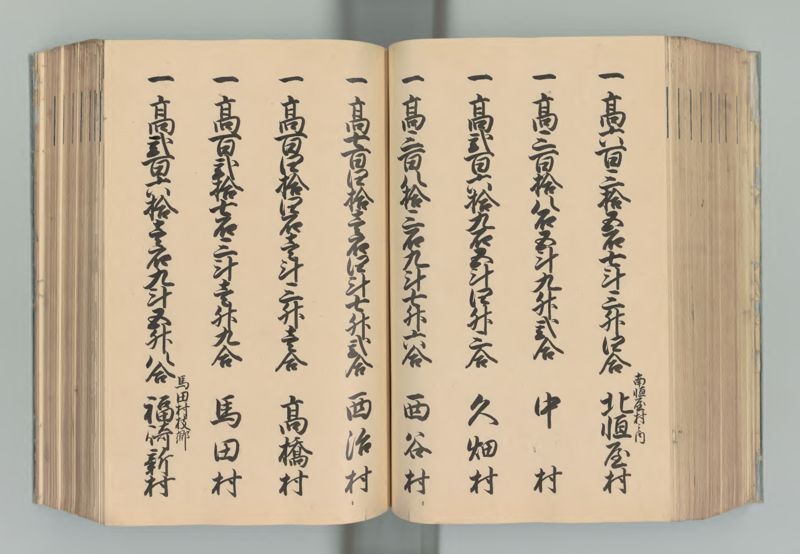 一 高六百三拾五石七斗三升四合 南恒屋村之内 北恒屋村
一 高三百拾八石五斗九升弐合 中村
一 高弐百六拾九石五斗四升三合 久畑村
一 高三百八拾三石九斗七升六合 西谷村
一 高七百四拾壱石四斗七升弐合 西治村
一 高百四拾四石壱斗三升壱合 高橋村
一 高百弐拾七石三斗壱升九合 馬田村
一 高弐百六拾壱石九斗五升八合 馬田村枝郷 福崎新村